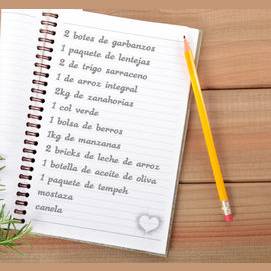 2 botes de garbanzos
1 paquete de lentejas
2 de trigo sarraceno
1 de arroz integral
2kg de zanahorias
1 col verde
1 bolsa de berros
1kg de manzanas
2 bricks de leche de arroz
1 botella de aceite de oliva
1 paquete de tempeh
mostaza
canela